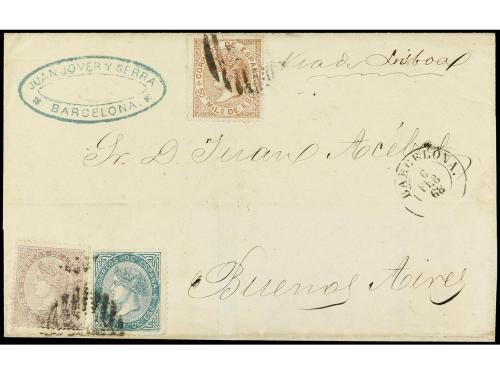 JUAN JOVER Y SERRA
BARCELONA.
CORREOS DE ESPAÑA
50 MILS DE ESCO
Via de Lisboa
Sr. D. Juan Acébal
BARCELONA.
6
FEB
68
CORREOS DE ESPAÑA
Buenos Aires